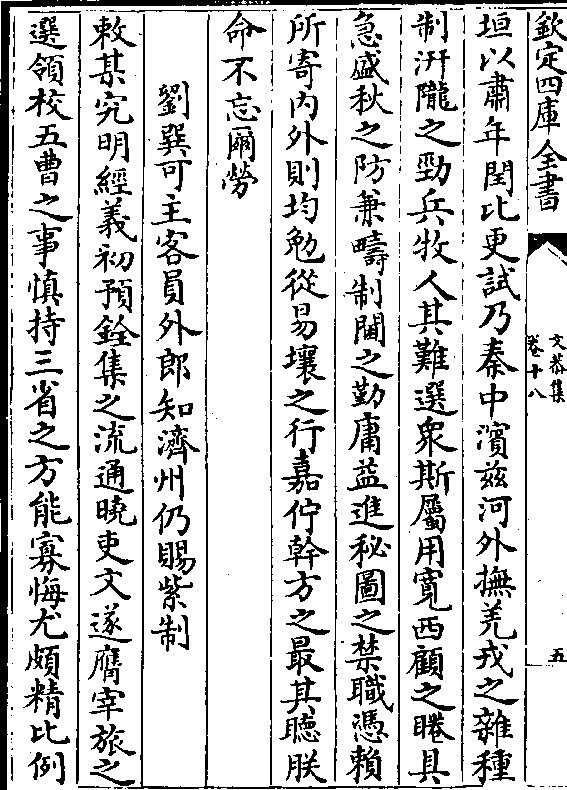 欽定四庫全書
文恭集
卷十八
五
垣以肅年閏比更試乃秦中濱兹河外撫羌戎之雜種
制汧隴之勁兵牧人其難選衆斯屬用寛西顧之睠具
急盛秋之防兼疇制閫之勤庸益進秘圖之禁職憑賴
所寄内外則均勉從易壤之行嘉佇幹方之最其聴朕
命不忘爾勞
劉巽可主客員外郎知濟州仍賜紫制
敕某究明經義初預銓集之流通曉吏文遂膺宰旅之
選領校五曹之事慎持三省之方能寡悔尤頗精比例